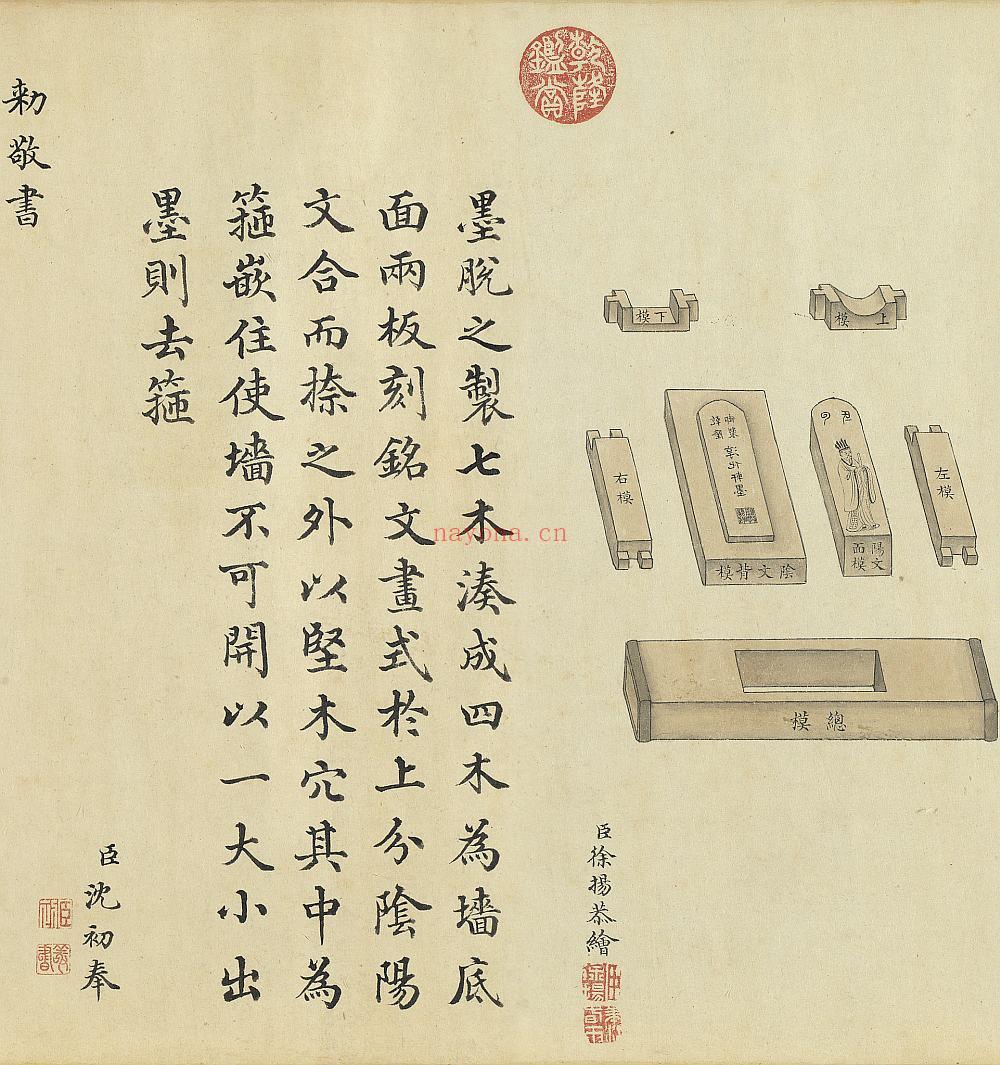 乾隆鑑賞
上模
下模
左模
陽文
面模
陰文背模
右模
總模
臣徐揚恭繪
墨脫之製七木湊成四木為墻底
面兩板刻銘文畫式於上分陰陽
文合而捺之外以堅木穴其中為
箍嵌住使墻不可開以一大小出
墨則去箍
臣沈初奉
勅敬書
nayona.cn